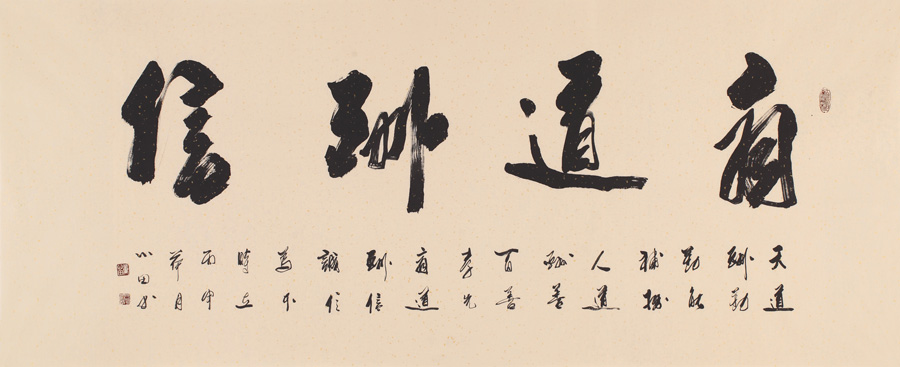 商道酬信
天道
酬勤
勤能
補拙
人道
酬善
百善
孝先
商道
酬信
誠信
為本
時在
丙申
荷月
小田书